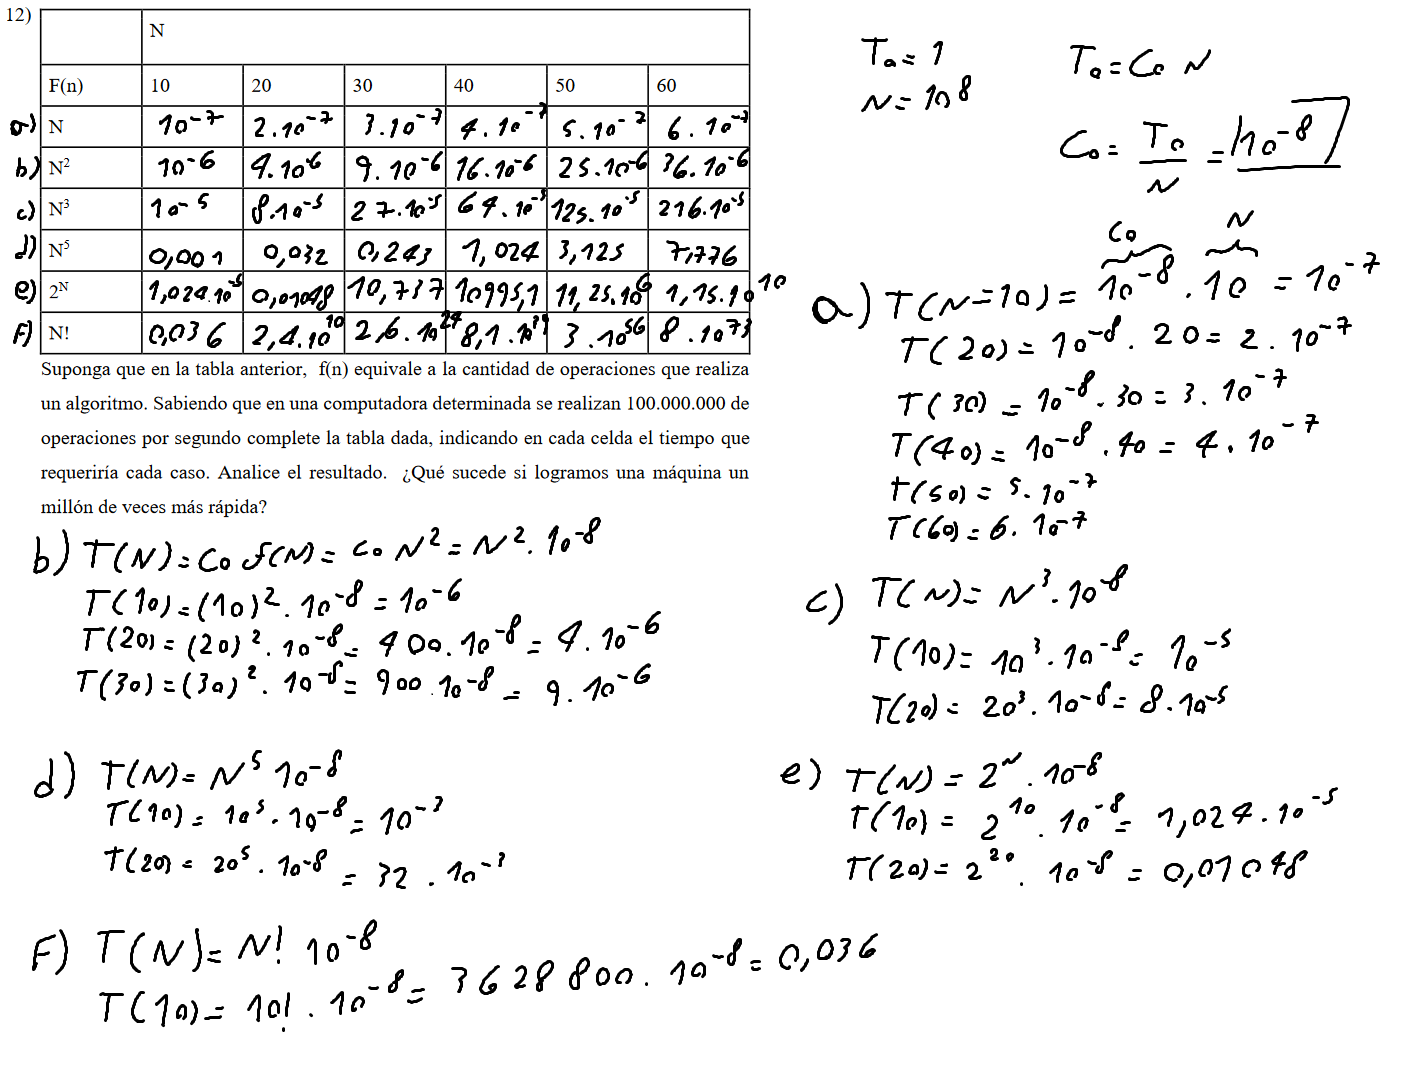 12)
N
F(n) 10 20 30 40 50 60
a) N 10⁻⁷ 2.10⁻⁷ 3.10⁻⁷ 4.10⁻⁷ 5.10⁻⁷ 6.10⁻⁷
b) N² 10⁻⁶ 4.10⁻⁶ 9.10⁻⁶ 16.10⁻⁶ 25.10⁻⁶ 36.10⁻⁶
c) N³ 10⁻⁵ 8.10⁻⁵ 27.10⁻⁵ 64.10⁻⁵ 125.10⁻⁵ 216.10⁻⁵
d) N⁵ 0,001 0,032 0,243 1,024 3,125 7,776
e) 2ᴺ 1,024.10⁻⁵ 0,01048 10,737 10995,1 11,25.10⁶ 1,15.10¹⁰
F) N! 0,036 2,4.10¹⁰ 2,6.10²⁴ 8,1.10³⁹ 3.10⁵⁶ 8.10⁷³
Suponga que en la tabla anterior, f(n) equivale a la cantidad de operaciones que realiza
un algoritmo. Sabiendo que en una computadora determinada se realizan 100.000.000 de
operaciones por segundo complete la tabla dada, indicando en cada celda el tiempo que
requeriría cada caso. Analice el resultado. ¿Qué sucede si logramos una máquina un
millón de veces más rápida?
T₀ = 1
N = 10⁸
T₀ = C₀ N
C₀ = T₀/N = 10⁻⁸
C₀ N
a) T(N=10) = 10⁻⁸ . 10 = 10⁻⁷
T(20) = 10⁻⁸ . 20 = 2 . 10⁻⁷
T(30) = 10⁻⁸ . 30 = 3 . 10⁻⁷
T(40) = 10⁻⁸ . 40 = 4 . 10⁻⁷
T(50) = 5 . 10⁻⁷
T(60) = 6 . 10⁻⁷
b) T(N) = C₀ f(N) = C₀ N² = N² . 10⁻⁸
T(10) = (10)² . 10⁻⁸ = 10⁻⁶
T(20) = (20)² . 10⁻⁸ = 400 . 10⁻⁸ = 4 . 10⁻⁶
T(30) = (30)² . 10⁻⁸ = 900 . 10⁻⁸ = 9 . 10⁻⁶
c) T(N) = N³ . 10⁻⁸
T(10) = 10³ . 10⁻⁸ = 10⁻⁵
T(20) = 20³ . 10⁻⁸ = 8 . 10⁻⁵
d) T(N) = N⁵ 10⁻⁸
T(10) = 10⁵ . 10⁻⁸ = 10⁻³
T(20) = 20⁵ . 10⁻⁸ = 32 . 10⁻³
e) T(N) = 2ᴺ . 10⁻⁸
T(10) = 2¹⁰ . 10⁻⁸ = 1,024 . 10⁻⁵
T(20) = 2²⁰ . 10⁻⁸ = 0,01048
F) T(N) = N! 10⁻⁸
T(10) = 10! . 10⁻⁸ = 3628800 . 10⁻⁸ = 0,036